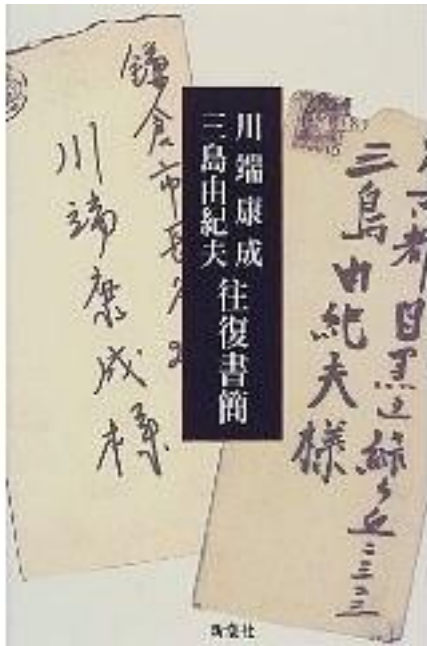 川端康成
三島由紀夫
往復書簡
鎌倉市長谷
川端康成様
京都目黒区緑ヶ丘二三二三
三島由紀夫様
新潮社